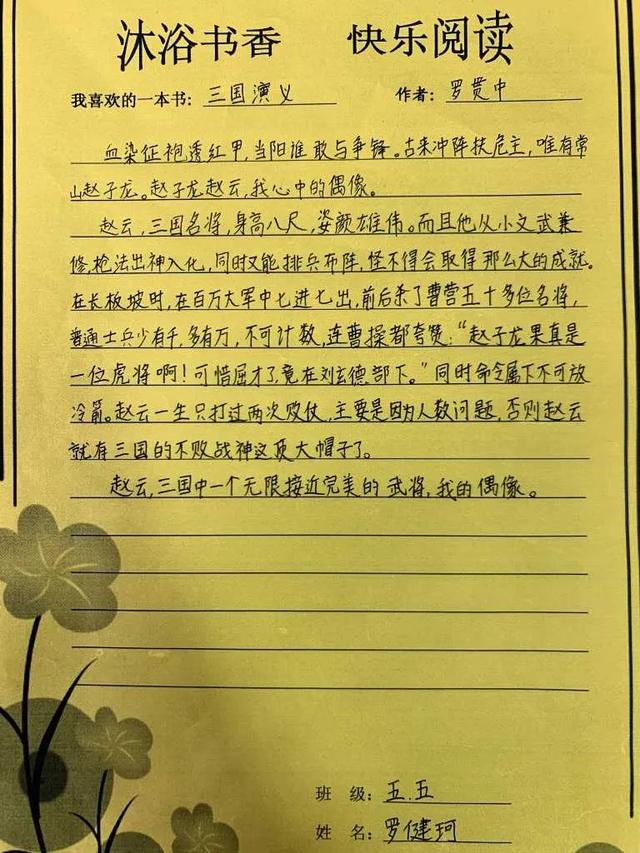 沐浴书香 快乐阅读
我喜欢的一本书: 三国演义 作者: 罗贯中
血染征袍透红甲,当阳谁敢与争锋。古来冲阵扶危主,唯有常
山赵子龙。赵子龙赵云,我心中的偶像。
赵云,三国名将,身高八尺,姿颜雄伟。而且他从小文武兼
修,枪法出神入化,同时又能排兵布阵,怪不得会取得那么大的成就。
在长板坡时,在百万大军中七进七出,前后杀了曹营五十多位名将,
普通士兵少有千,多有万,不可计数,连曹操都夸赞:“赵子龙果真是
一位虎将啊!可惜屈才了,竟在刘玄德部下。”同时命令属下不可放
冷箭。赵云一生只打过两次败仗,主要是因为人数问题,否则赵云
就有三国的不败战神这顶大帽子了。
赵云,三国中一个无限接近完美的武将,我的偶像。
班 级: 五.五
姓 名: 罗健珂